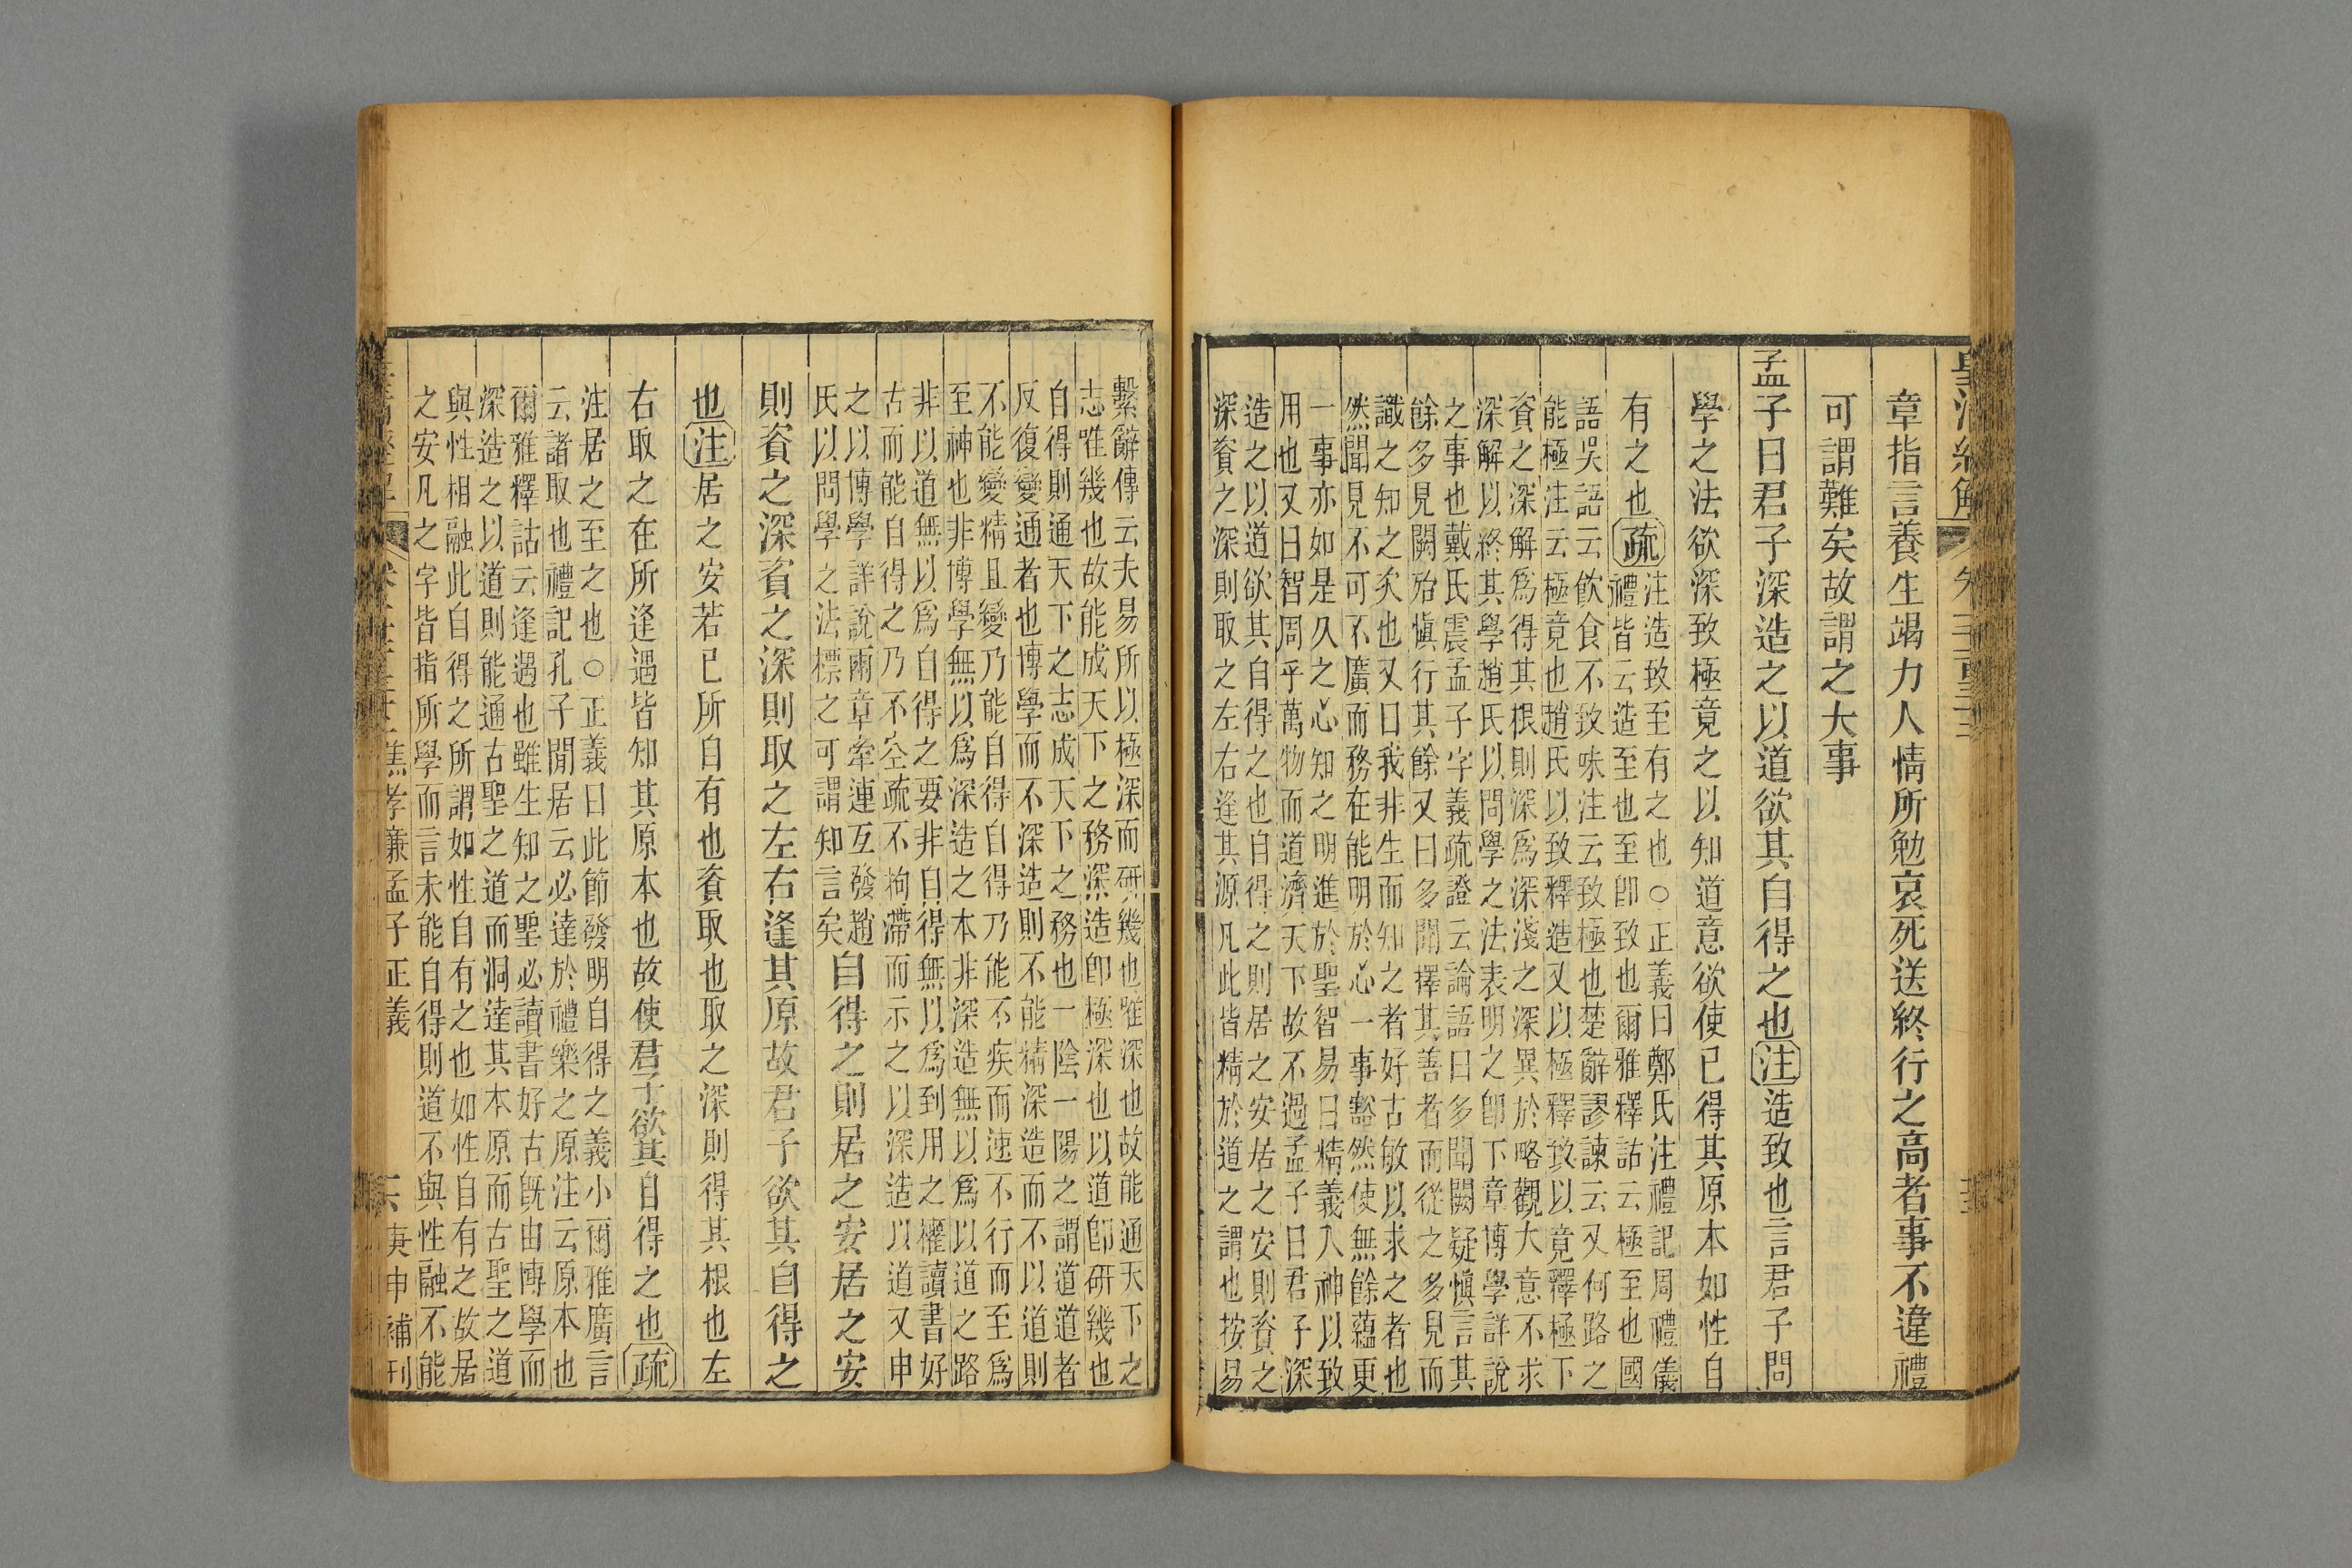 皇清經解
章指言養生竭力人情所勉哀死送終行之高者事不違禮
可謂難矣故謂之大事
孟子曰君子深造之以道欲其自得之也注造致也言君子問
學之法欲深致極竟之以知道意欲使己得其原本如性自
有之也疏
注造致至有之也○正義曰鄭氏注禮記周禮儀
禮皆云造至也至卽致也爾雅釋詁云極至也國
語吳語云飮食不致味注云致極也楚辭謬諫云又何路之
能極注云極竟也趙氏以致釋造又以極釋致以竟釋極下
資之深解爲得其根則深爲深淺之深異於略觀大意不求
深解以終其學趙氏以問學之法表明之卽下章博學詳說
之事也戴氏震孟子字義疏證云論語曰多聞闕疑愼言其
餘多見闕殆愼行其餘又曰多聞擇其善者而從之多見而
識之知之次也又曰我非生而知之者好古敏以求之者也
然聞見不可不廣而務在能明於心一事豁然使無餘蘊更
一事亦如是久之心知之明進於聖智易曰精義入神以致
用也又曰智周乎萬物而道濟天下故不過孟子曰君子深
造之以道欲其自得之也自得之則居之安居之安則資之
深資之深則取之左右逢其源凡此皆精於道之謂也按易
繫辭傳云夫易所以極深而研幾也唯深也故能通天下之
志唯幾也故能成天下之務深造卽極深也以道卽研幾也
自得則通天下之志成天下之務也一陰一陽之謂道道者
反復變通者也博學而不深造則不能精深造而不以道則
不能變精且變乃能自得自得乃能不疾而速不行而至爲
至神也非博學無以爲深造之本非深造無以爲以道之路
非以道無以爲自得之要非自得無以爲到用之權讀書好
古而能自得之乃不空疏不拘滯而示之以深造以道又申
之以博學詳說兩章牽連互發趙
氏以問學之法標之可謂知言矣
自得之則居之安居之安
則資之深資之深則取之左右逢其原故君子欲其自得之
也注居之安若己所自有也資取也取之深則得其根也左
右取之在所逢遇皆知其原本也故使君子欲其自得之也疏
注居之至之也○正義曰此節發明自得之義小爾雅廣言
云諸取也禮記孔子閒居云必達於禮樂之原注云原本也
爾雅釋詁云逢遇也雖生知之聖必讀書好古旣由博學而
深造之以道則能通古聖之道而洞達其本原而古聖之道
與性相融此自得之所謂如性自有之也如性自有之故居
之安凡之字皆指所學而言未能自得則道不與性融不能
焦孝廉孟子正義
庚申補刊